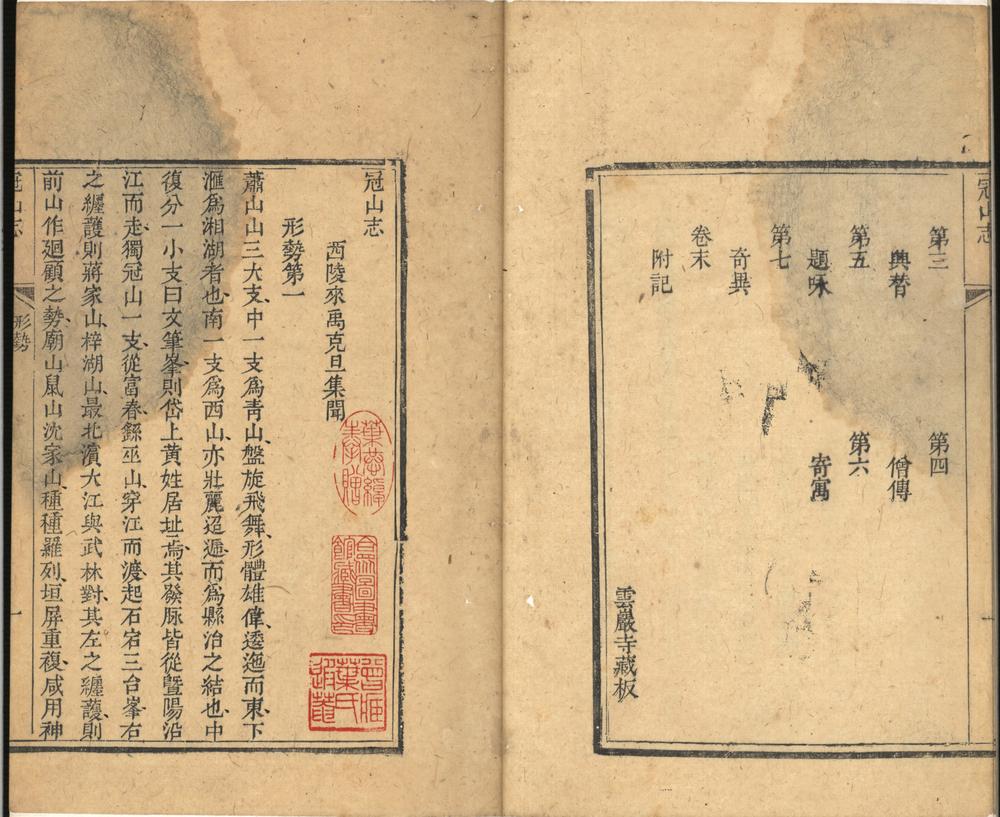 冠山志
第三
第四
興替
僧傳
第五
第六
題咏
寄寓
第七
奇異
卷末
附記
雲巖寺藏板
冠山志
西陵來禹克旦集聞
形勢第一
蕭山山三大支中一支爲青山盤旋飛舞形體雄偉逶迤而東下
滙爲湘湖者也南一支爲西山亦壯麗迢遞而爲縣治之結也中
復分一小支曰文筆峯則岱上黃姓居址焉其發脉皆從曁陽沿
江而走獨冠山一支從富春繇巫山穿江而渡起石宕三台峯右
之纏護則蔣家山梓湖山最北濵大江與武林對其左之纏護則
前山作廻顧之勢廟山鼠山沈家山種種羅列垣屏重複咸用神
冠山志
形勢
一
合衆圖書
館藏書印
葉氏